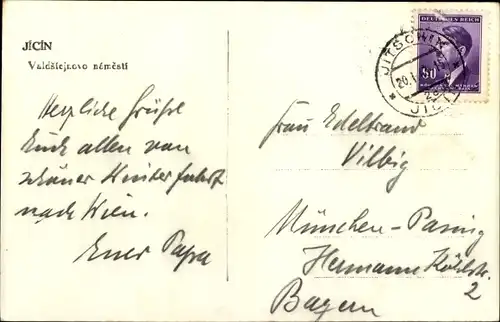 JIČÍN
Valdštejnovo náměstí
Herzliche Grüße
Euch allen von
schöner Winterfahrt
nach Wien.
Euer Papa
DEUTSCHES REICH
80
JITSCHIN
20.I.
JIČ
Frau Edeltraud
Vilbig
München-Pasing
Hermann Köhlstr.
2
Bayern